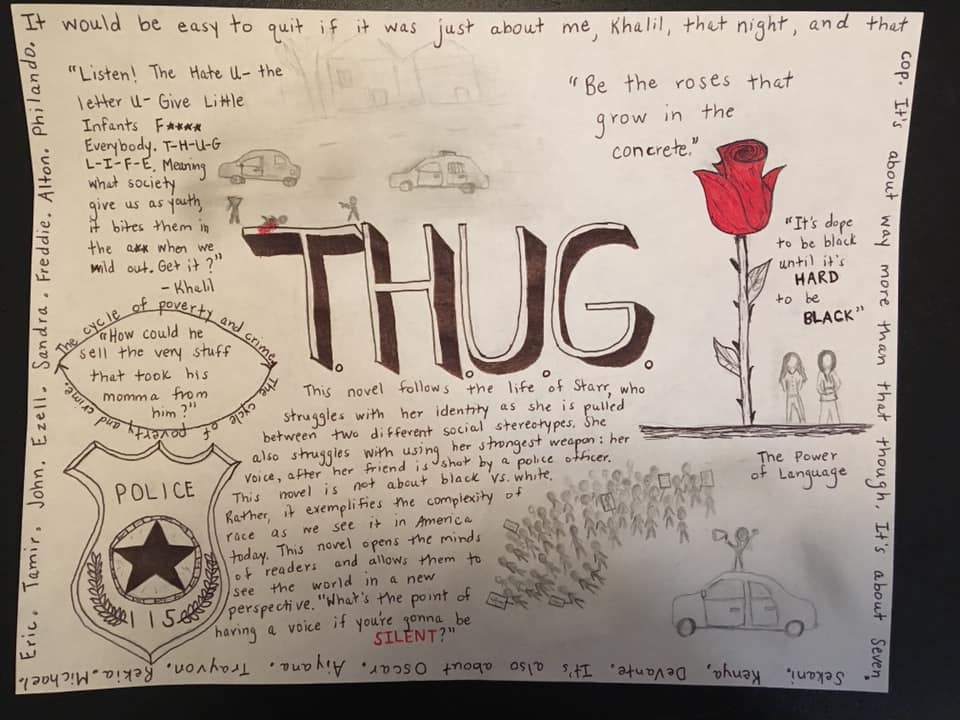 It would be easy to quit if it was just about me, Khalil, that night, and that
cop. It's about way more than that though. It's about Seven.
Sekani. Kenya. DeVante. It's also about Oscar. Aiyana. Trayvon. Rekia. Michael.
Eric. Tamir. John. Ezell. Sandra. Freddie. Alton. Philando.
"Listen! The Hate U- the
letter U- Give Little
Infants F****
Everybody. T-H-U-G
L-I-F-E. Meaning
what society
give us as youth,
it bites them in
the a** when we
wild out. Get it?"
- Khalil
"Be the roses that
grow in the
concrete."
T.H.U.G.
"It's dope
to be black
until it's
HARD
to be
BLACK"
The cycle of poverty and crime. The cycle of poverty and crime.
"How could he
sell the very stuff
that took his
momma from
him?"
This novel follows the life of Starr, who
struggles with her identity as she is pulled
between two different social stereotypes. She
also struggles with using her strongest weapon: her
voice, after her friend is shot by a police officer.
This novel is not about black vs. white.
Rather, it exemplifies the complexity of
race as we see it in America
today. This novel opens the minds
of readers and allows them to
see the world in a new
perspective. "What's the point of
having a voice if you're gonna be
SILENT?"
The Power
of Language
POLICE
115